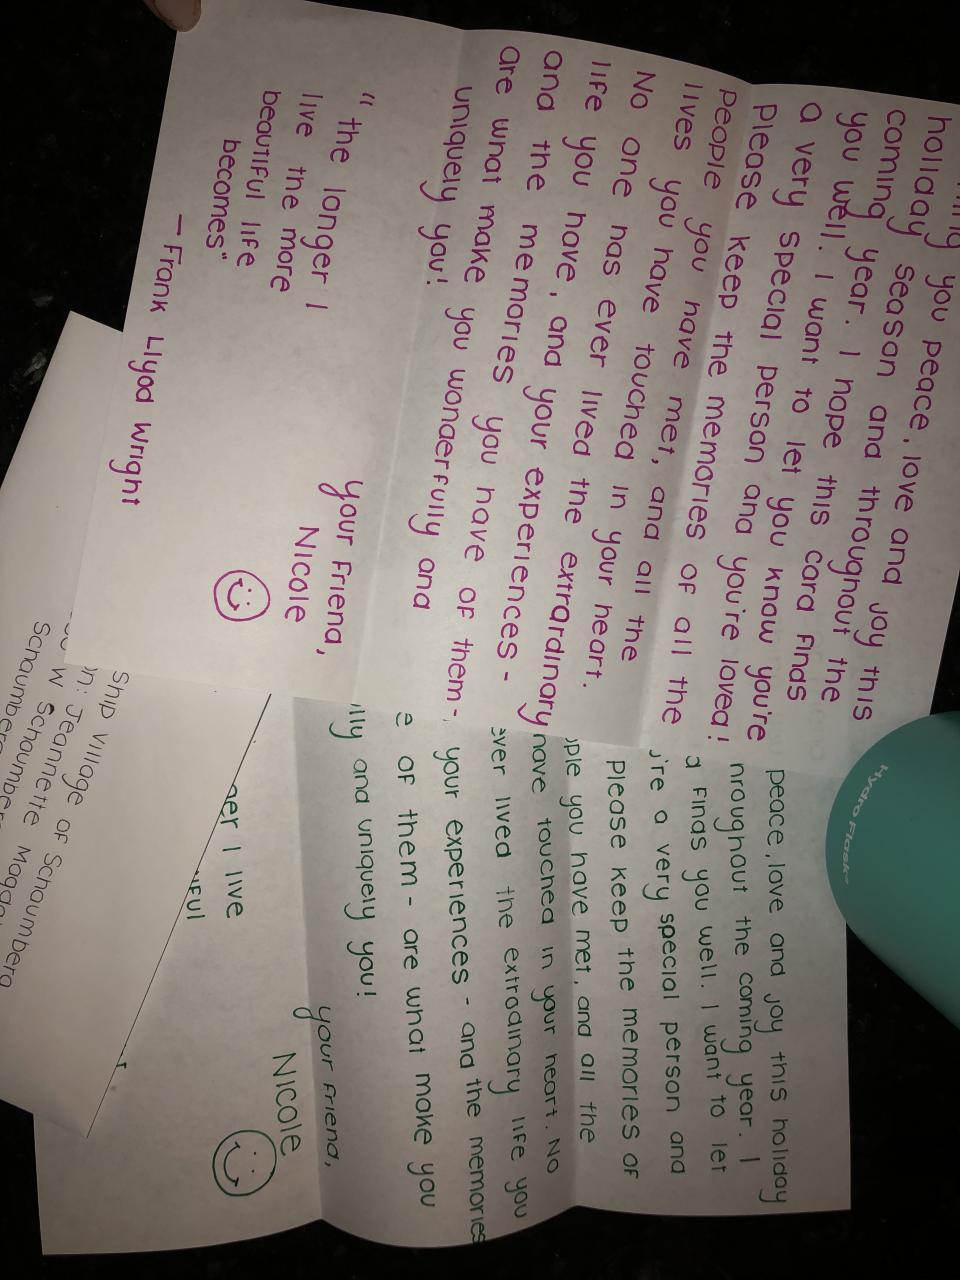 holiday you peace, love and joy this
coming season and throughout the
you well. I hope this card finds
a very special person and you're
Please keep the memories of all the
people you have met, and all the
lives you have touched in your heart.
No one has ever lived the extrardinary
life you have, and your experiences -
and the memories you have of them -
are what make you wonderfully and
uniquely you!
your friend,
Nicole
"the longer I
live the more
beautiful life
becomes"
- Frank Llyod Wright
peace, love and joy this holiday
hroughout the coming year. I
d finds you well. I want to let
're a very special person and
Please keep the memories of
ople you have met, and all the
have touched in your heart. No
ever lived the extradinary life you
your experiences - and the memories
e of them - are what make you
lly and uniquely you!
your friend,
Nicole
ger I live
iful
Ship Village of Schaumberg
n: Jeanette Magda
W Schaumberg
Schaumberg
Hydro Flask